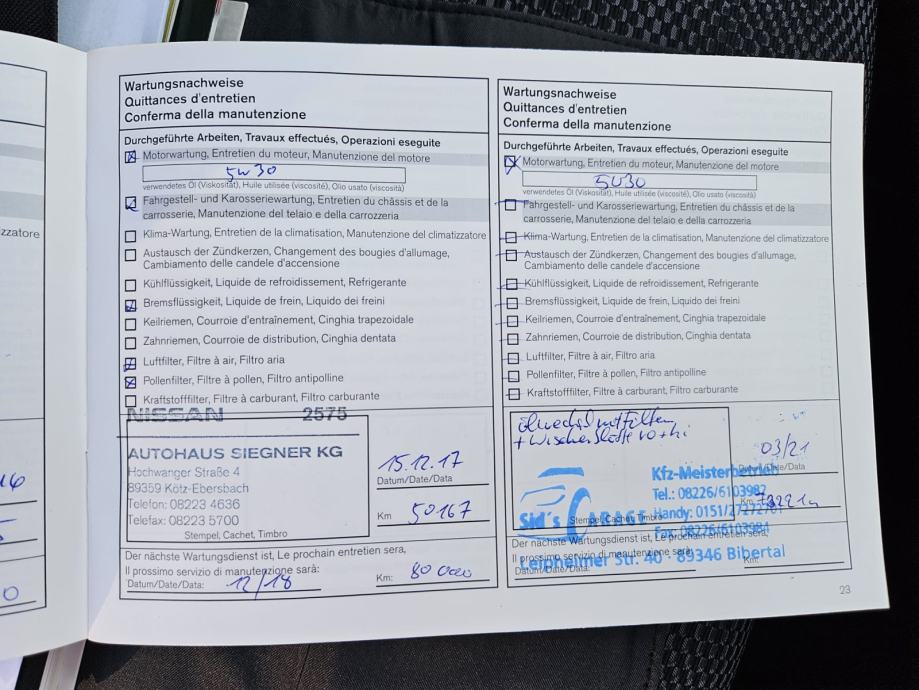 zzatore
16
0
Wartungsnachweise
Quittances d'entretien
Conferma della manutenzione
Durchgeführte Arbeiten, Travaux effectués, Operazioni eseguite
Motorwartung, Entretien du moteur, Manutenzione del motore
5W30
verwendetes Öl (Viskosität), Huile utilisée (viscosité), Olio usato (viscosità)
Fahrgestell- und Karosseriewartung, Entretien du châssis et de la
carrosserie, Manutenzione del telaio e della carrozzeria
Klima-Wartung, Entretien de la climatisation, Manutenzione del climatizzatore
Austausch der Zündkerzen, Changement des bougies d'allumage,
Cambiamento delle candele d'accensione
Kühlflüssigkeit, Liquide de refroidissement, Refrigerante
Bremsflüssigkeit, Liquide de frein, Liquido dei freini
Keilriemen, Courroie d'entraînement, Cinghia trapezoidale
Zahnriemen, Courroie de distribution, Cinghia dentata
Luftfilter, Filtre à air, Filtro aria
Pollenfilter, Filtre à pollen, Filtro antipolline
Kraftstofffilter, Filtre à carburant, Filtro carburante
NISSAN 2575
AUTOHAUS SIEGNER KG
Hochwanger Straße 4
89359 Kötz-Ebersbach
Telefon: 08223 4636
Telefax: 08223 5700
Stempel, Cachet, Timbro
15.12.17
Datum/Date/Data
Km 50167
Der nächste Wartungsdienst ist, Le prochain entretien sera,
Il prossimo servizio di manutenzione sarà:
Datum/Date/Data: 12/18 Km: 80 000
Wartungsnachweise
Quittances d'entretien
Conferma della manutenzione
Durchgeführte Arbeiten, Travaux effectués, Operazioni eseguite
Motorwartung, Entretien du moteur, Manutenzione del motore
5W30
verwendetes Öl (Viskosität), Huile utilisée (viscosité), Olio usato (viscosità)
Fahrgestell- und Karosseriewartung, Entretien du châssis et de la
carrosserie, Manutenzione del telaio e della carrozzeria
Klima-Wartung, Entretien de la climatisation, Manutenzione del climatizzatore
Austausch der Zündkerzen, Changement des bougies d'allumage,
Cambiamento delle candele d'accensione
Kühlflüssigkeit, Liquide de refroidissement, Refrigerante
Bremsflüssigkeit, Liquide de frein, Liquido dei freini
Keilriemen, Courroie d'entraînement, Cinghia trapezoidale
Zahnriemen, Courroie de distribution, Cinghia dentata
Luftfilter, Filtre à air, Filtro aria
Pollenfilter, Filtre à pollen, Filtro antipolline
Kraftstofffilter, Filtre à carburant, Filtro carburante
Ölwechsel mit Filter
+ Wischerblätter vo + hi
03/21
Datum/Date/Data
Km
Kfz-Meisterbetrieb
Tel.: 08226/6103982
Sid's GARAGE Handy: 0151/
Stempel, Cachet, Timbro
Fax: 08226/6103981
Leipheimer Str. 46 · 89346 Bibertal
Der nächste Wartungsdienst ist, Le prochain entretien sera,
Il prossimo servizio di manutenzione sarà:
Datum/Date/Data: Km:
23